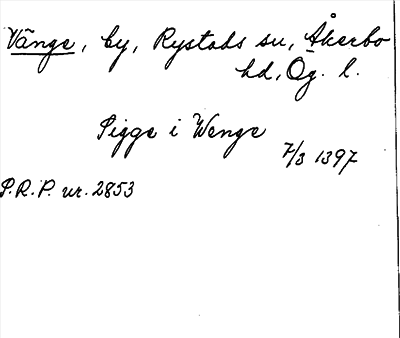 Vänge, by, Rystads sn, Åkerbo
hd, Ög. l.
Sigge i Wenge
7/3 1397
P.R.P. nr. 2853